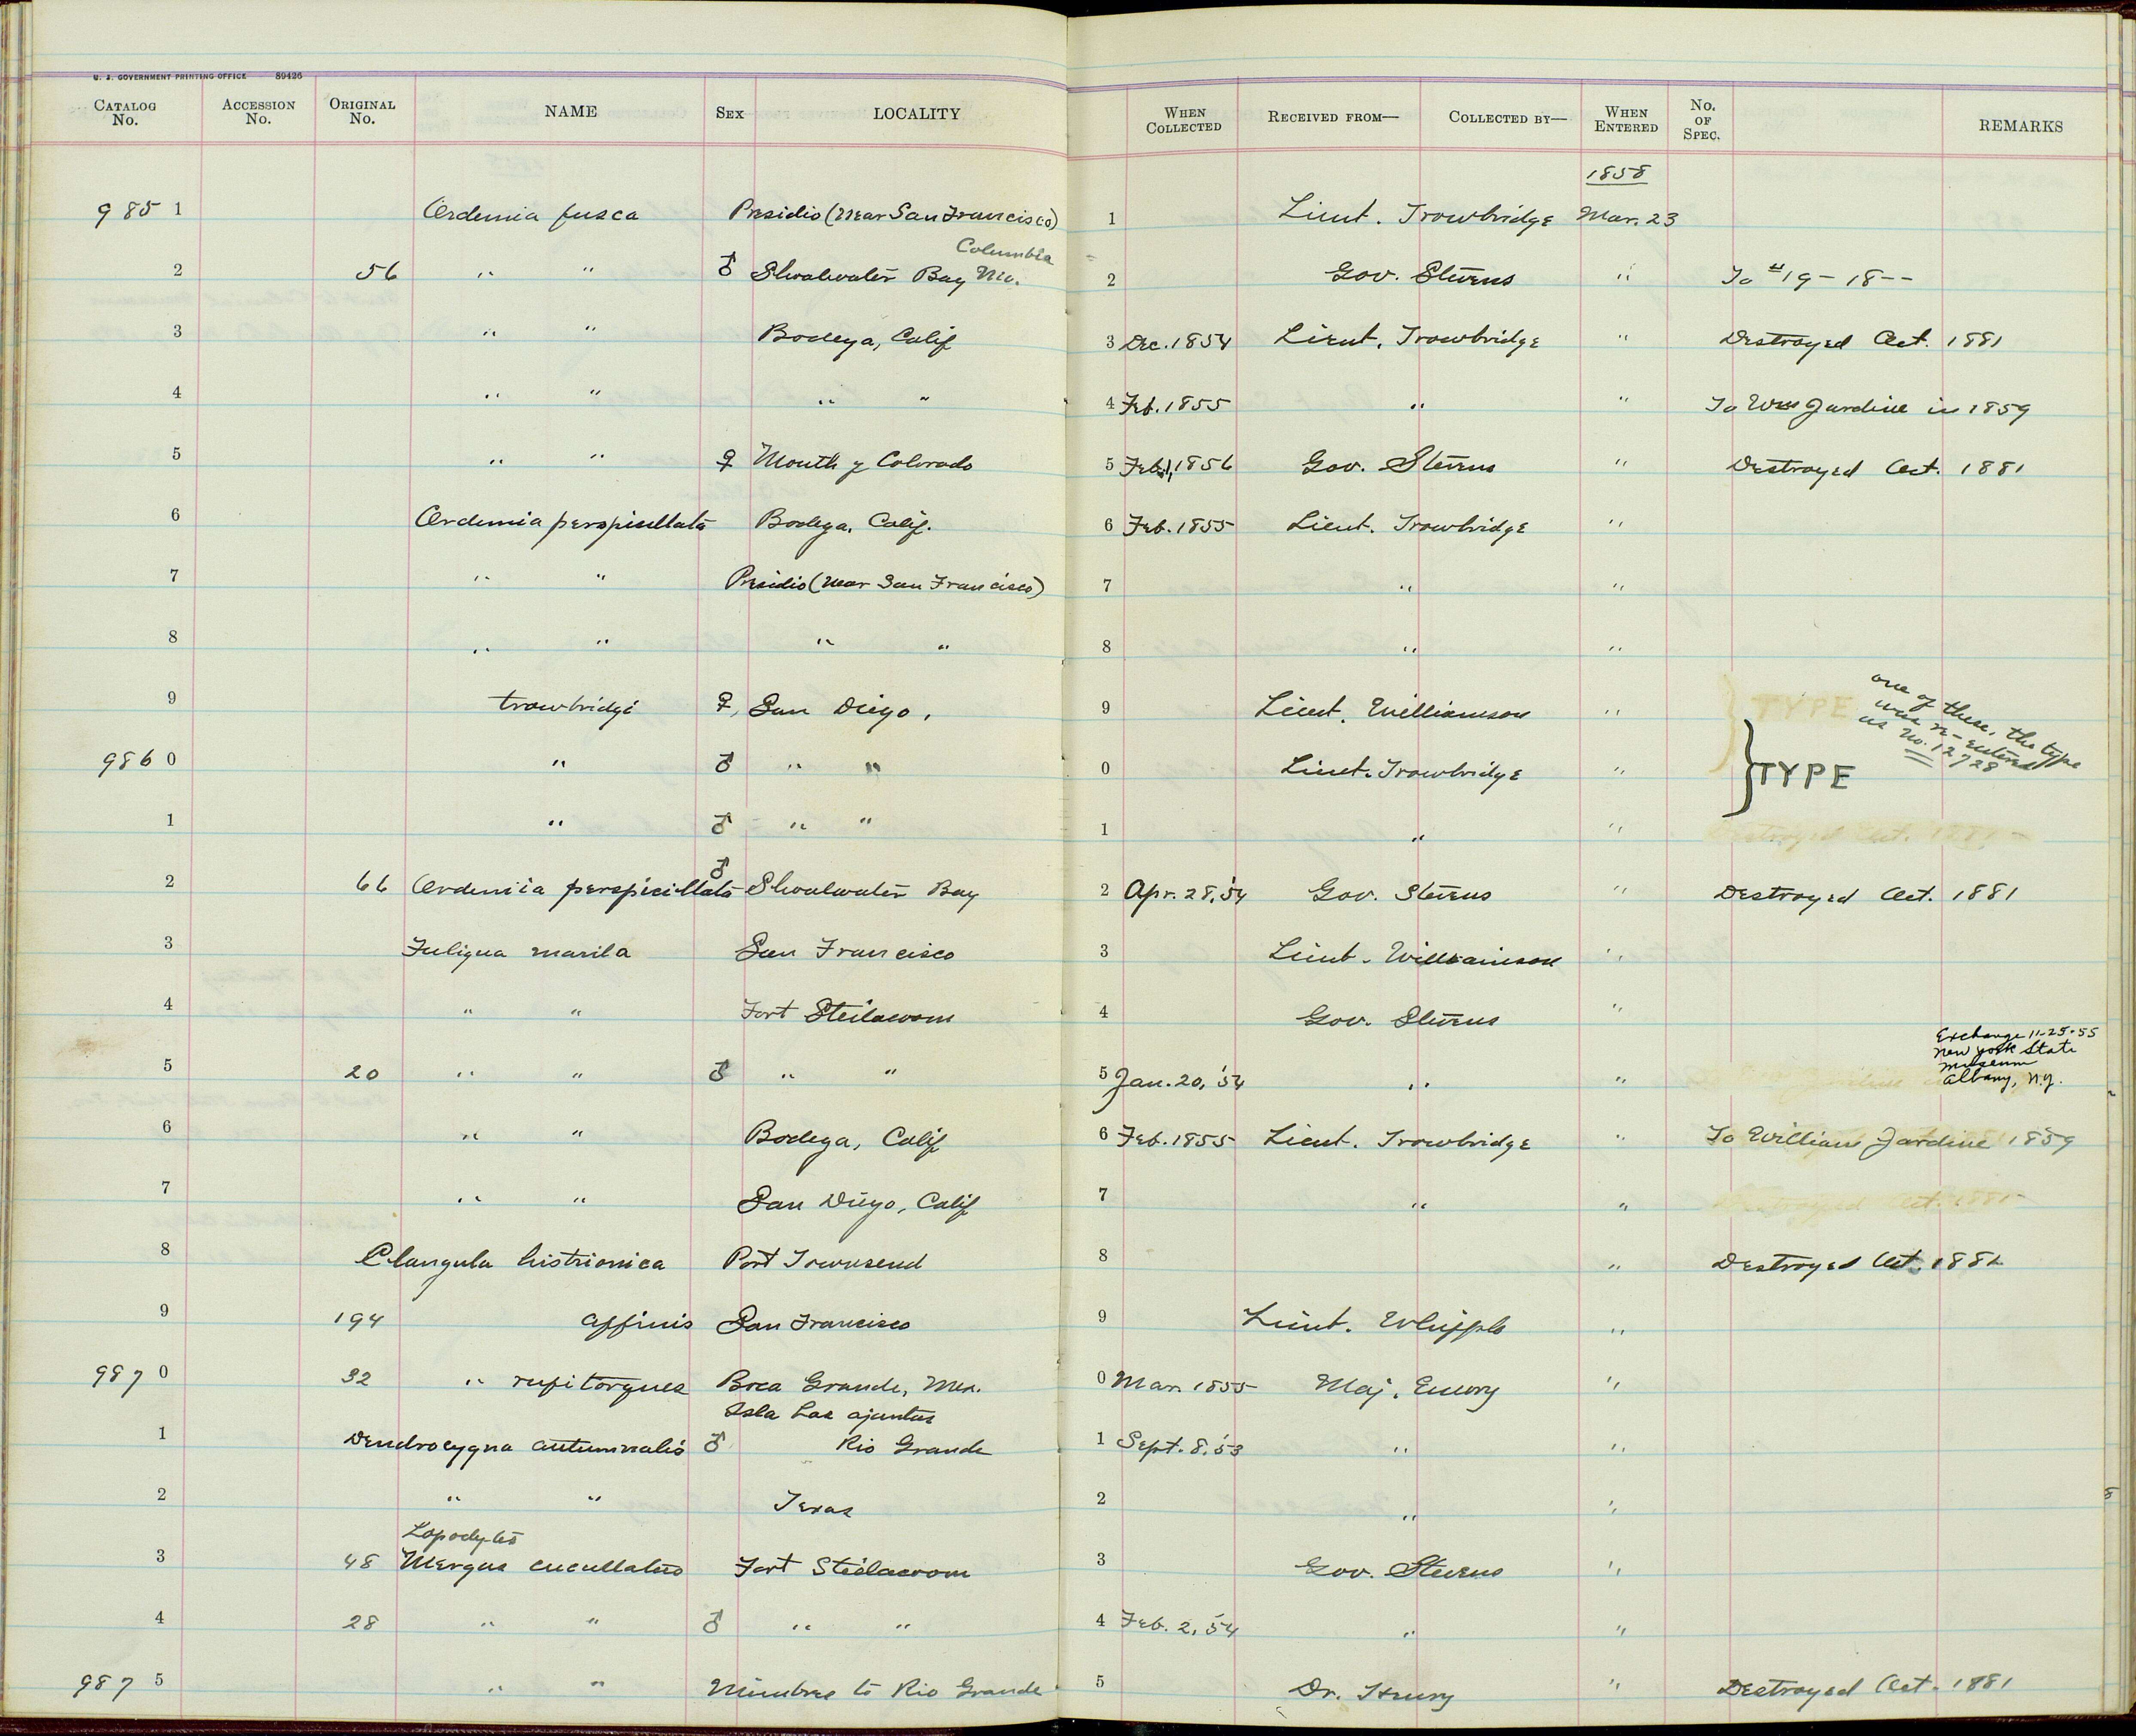 U. S. GOVERNMENT PRINTING OFFICE 89426
CATALOG No. ACCESSION No. ORIGINAL No. NAME SEX LOCALITY WHEN COLLECTED RECEIVED FROM— COLLECTED BY— WHEN ENTERED No. OF SPEC. REMARKS
1858
985 1 Oedemia fusca Presidio (near San Francisco) 1 Lieut. Trowbridge Mar. 23
Columbia
2 56 " " ♂ Shoalwater Bay 2 Gov. Stevens " To #19-18--
3 " " Bodega, Calif 3 Dec. 1854 Lieut. Trowbridge " Destroyed Oct. 1881
4 " " " " 4 Feb. 1855 " " To Wm Jardine in 1859
5 " " ♀ Mouth of Colorado 5 Feb. 1856 Gov. Stevens " Destroyed Oct. 1881
6 Oedemia perspicillata Bodega, Calif. 6 Feb. 1855 Lieut. Trowbridge "
7 " " Presidio (near San Francisco) 7 " "
8 " " " " 8 " "
9 trowbridgi ♀, San Diego. 9 Lieut. Williamson " } TYPE
one of these, the type
was re-entered
as No. 12728
986 0 " ♂ " " 0 Lieut. Trowbridge " } TYPE
1 " ♂ " " 1 " " Destroyed Oct. 1881
2 66 Oedemia perspicillata ♂ Shoalwater Bay 2 Apr. 28, '54 Gov. Stevens " Destroyed Oct. 1881
3 Fuligua marila San Francisco 3 Lieut. Williamson "
4 " " Fort Steilacoom 4 Gov. Stevens "
Exchange 11-25-55
New York State
Museum
Albany, N.Y.
5 20 " " ♂ " " 5 Jan. 20, '54 " "
6 " " Bodega, Calif 6 Feb. 1855 Lieut. Trowbridge " To William Jardine 1859
7 " " San Diego, Calif 7 " " Destroyed Oct. 1881
8 Clangula histrionica Port Townsend 8 " Destroyed Oct. 1881
9 194 affinis San Francisco 9 Lieut. Whipple "
987 0 32 " rufitorques Boca Grande, Mex. 0 Mar. 1855 Maj. Emory "
Isla
1 Dendrocygna autumnalis ♂ Rio Grande 1 Sept. 8, '53 " "
2 " " Texas 2 " "
Lopodytes
3 48 Mergus cucullatus Fort Steilacoom 3 Gov. Stevens "
4 28 " " ♂ " " 4 Feb. 2, '54 " "
987 5 " " Mimbres to Rio Grande 5 Dr. Henry " Destroyed Oct. 1881